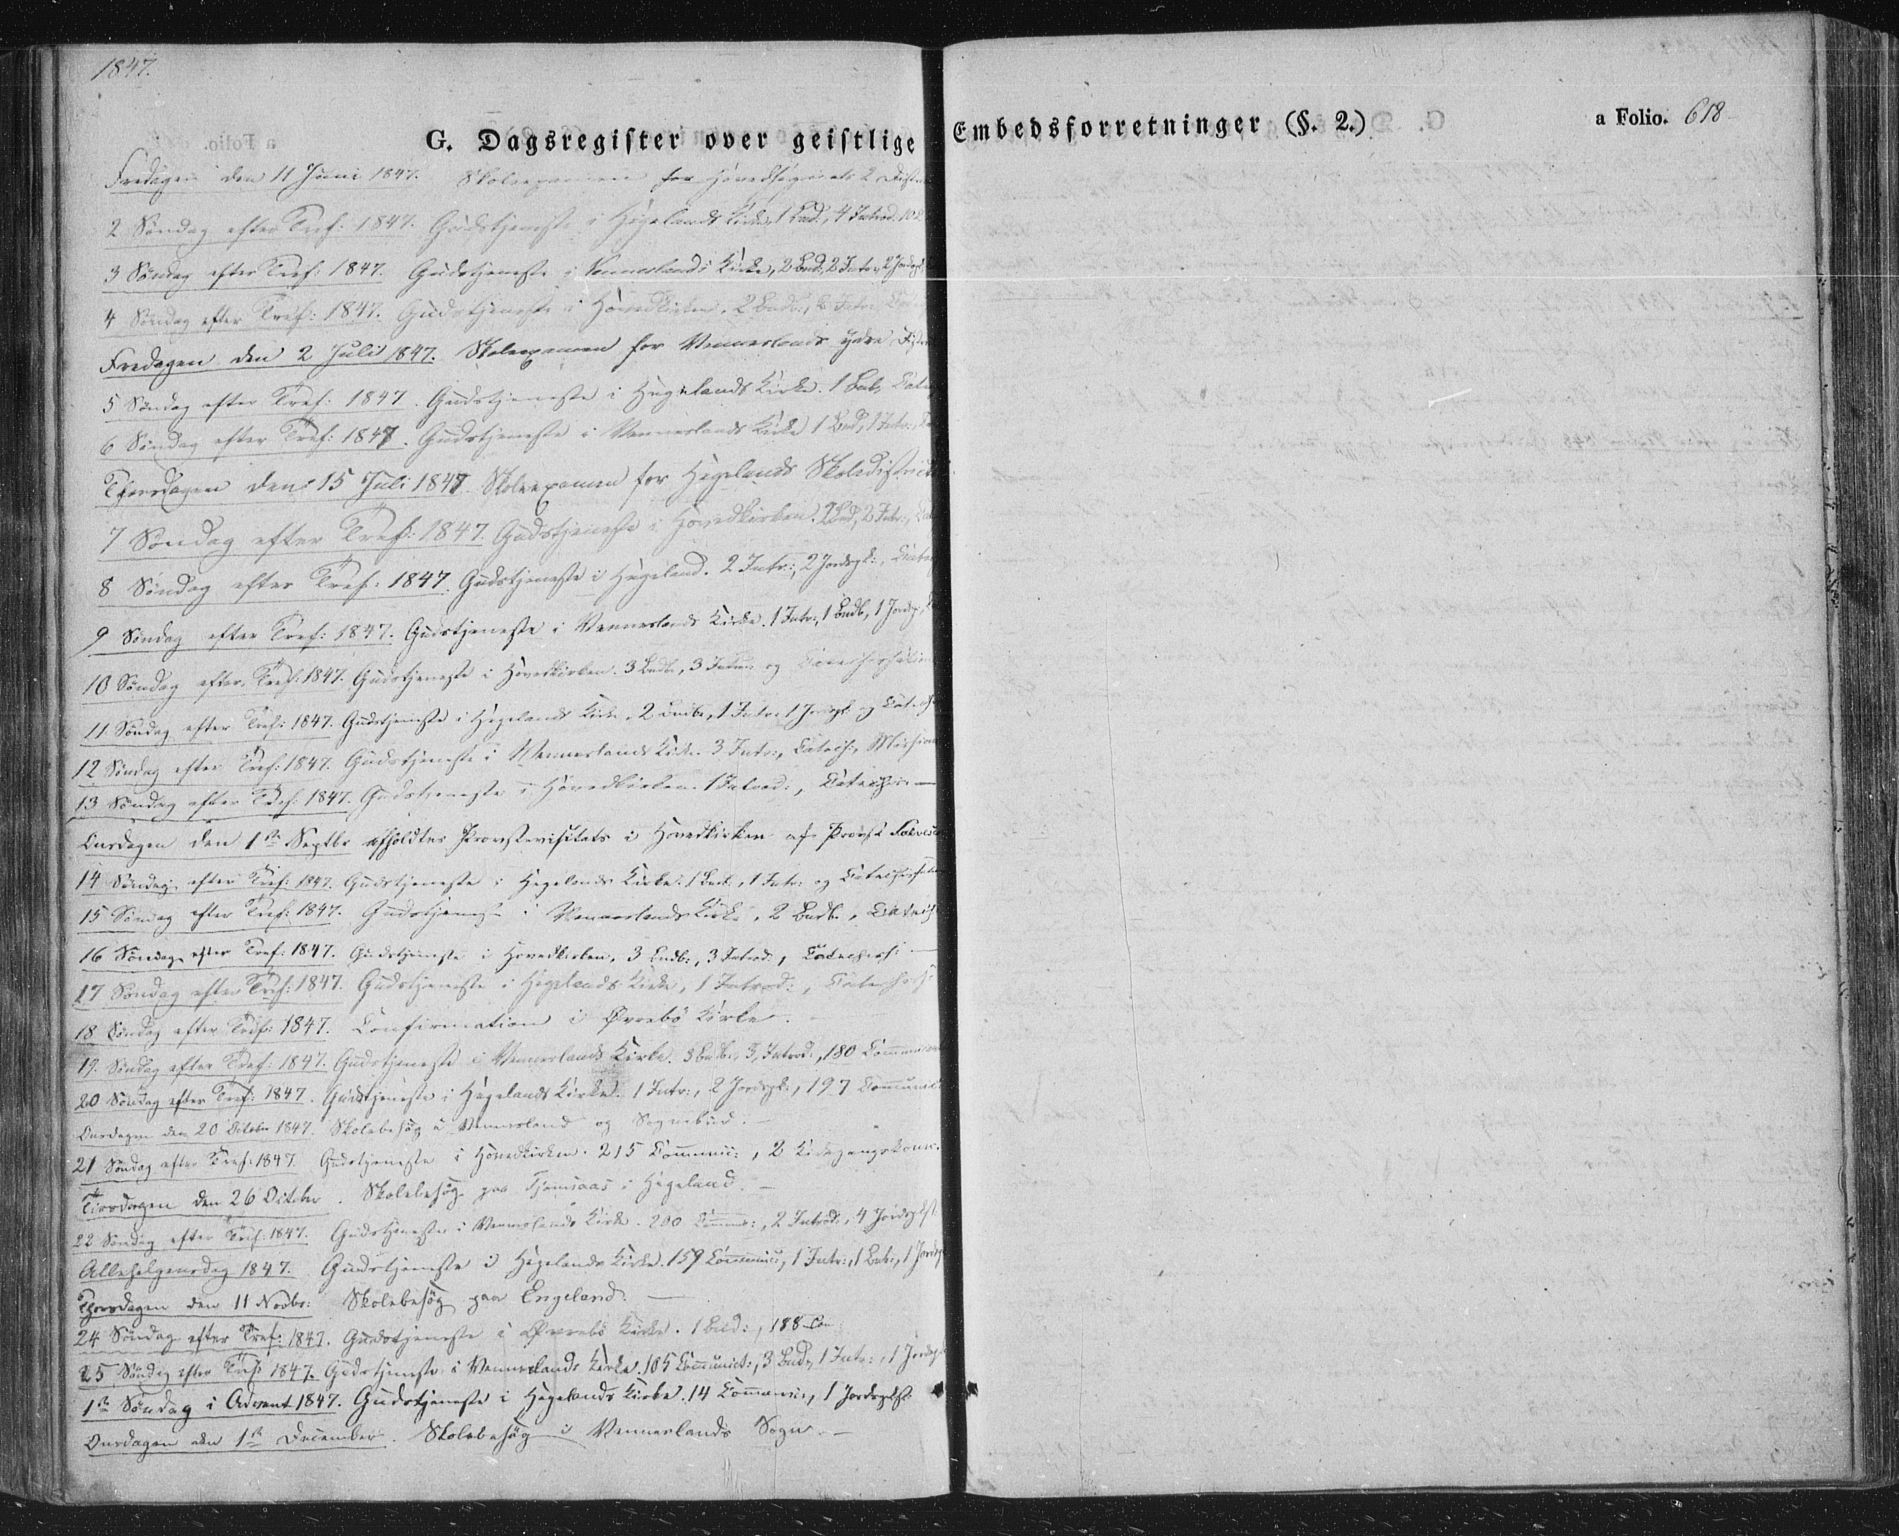 1847.
G. Dagsregister over geistlige Embedsforretninger (§. 2.)
a Folio. 618
Fredagen den 11 Juni 1847. Skoleexamen for Hovedsognets 2 Distr
2 Søndag efter Tref: 1847. Gudstjeneste i Hægelands Kirke, 1 Daab, 4 Introd.
3 Søndag efter Tref: 1847. Gudstjeneste i Vennerslands Kirke, 2 Daab, 2 Intr., 2 Jordsp
4 Søndag efter Tref: 1847. Gudstjeneste i Hovedkirken. 2 Daab, 2 Intr.
Fredagen den 2 Juli 1847. Skoleexamen for Vennerslands ydre Distr
5 Søndag efter Tref: 1847. Gudstjeneste i Hægelands Kirke. 1 Daab, Cate
6 Søndag efter Tref: 1847. Gudstjeneste i Vennerslands Kirke 1 Daab, 1 Intr.,
Thorsdagen den 15 Juli 1847. Skoleexamen for Hægelands Skoledistrict
7 Søndag efter Tref: 1847. Gudstjeneste i Hovedkirken. 2 Daab, 2 Intr.,
8 Søndag efter Tref: 1847. Gudstjeneste i Hægeland. 2 Intr:, 2 Jordspk:, Catech
9 Søndag efter Tref: 1847. Gudstjeneste i Vennerslands Kirke. 1 Intr:, 1 Daab, 1 Jordsp,
10 Søndag efter Tref: 1847. Gudstjeneste i Hovedkirken. 3 Daab, 3 Intr: og Catechisation
11 Søndag efter Tref: 1847. Gudstjeneste i Hægelands Kirke. 2 Daab, 1 Intr. 1 Jordspk og Catech
12 Søndag efter Tref: 1847. Gudstjeneste i Vennerslands Kirke. 3 Intr:, Catech:, Mission
13 Søndag efter Tref: 1847. Gudstjeneste i Hovedkirken. 1 Introd:, Catechis: —
Onsdagen den 1ste Septbr afholdtes Provstevisitats i Hovedkirken af Provst
14 Søndag efter Tref: 1847. Gudstjeneste i Hægelands Kirke. 1 Daab, 1 Intr: og Catechisation
15 Søndag efter Tref: 1847. Gudstjeneste i Vennerslands Kirke, 2 Daab, Catech
16 Søndag efter Tref: 1847. Gudstjeneste i Hovedkirken, 3 Daab:, 3 Introd:, Catechis: —
17 Søndag efter Tref: 1847. Gudstjeneste i Hægelands Kirke, 1 Introd:, Catechis:
18 Søndag efter Tref: 1847. Confirmation i Øvrebø Kirke.
19. Søndag efter Tref: 1847. Gudstjeneste i Vennerslands Kirke. 3 Daab:, 3 Introd:, 180 Communic
20 Søndag efter Tref: 1847. Gudstjeneste i Hægelands Kirke. 1 Intr:, 2 Jordspk:, 197 Communi
Onsdagen den 20 October 1847. Skolebesøg i Vennersland og Sognebud. —
21 Søndag efter Tref: 1847. Gudstjeneste i Hovedkirken. 215 Communi:, 2 Kirkegangskoner.
Tirsdagen den 26 October. Skolebesøg paa i Hægeland. —
22 Søndag efter Tref: 1847. Gudstjeneste i Vennerslands Kirke. 200 Commu:, 2 Introd:, 4 Jordspk
Allehelgensdag 1847. Gudstjeneste i Hægelands Kirke. 159 Communic:, 1 Intr:, 1 Daab:, 1 Jordsp
Thorsdagen den 11 Novbr: Skolebesøg paa Engeland. —
24 Søndag efter Tref: 1847. Gudstjeneste i Øvrebø Kirke. 1 Daab:, 188 Com:
25 Søndag efter Tref: 1847. Gudstjeneste i Vennerslands Kirke. 105 Communict:, 3 Daab, 1 Intr:, 1 Jordsp
1ste Søndag i Advent 1847. Gudstjeneste i Hægelands Kirke. 14 Communi:, 1 Jordspk
Onsdagen den 1ste December. Skolebesøg i Vennerslands Sogn. —